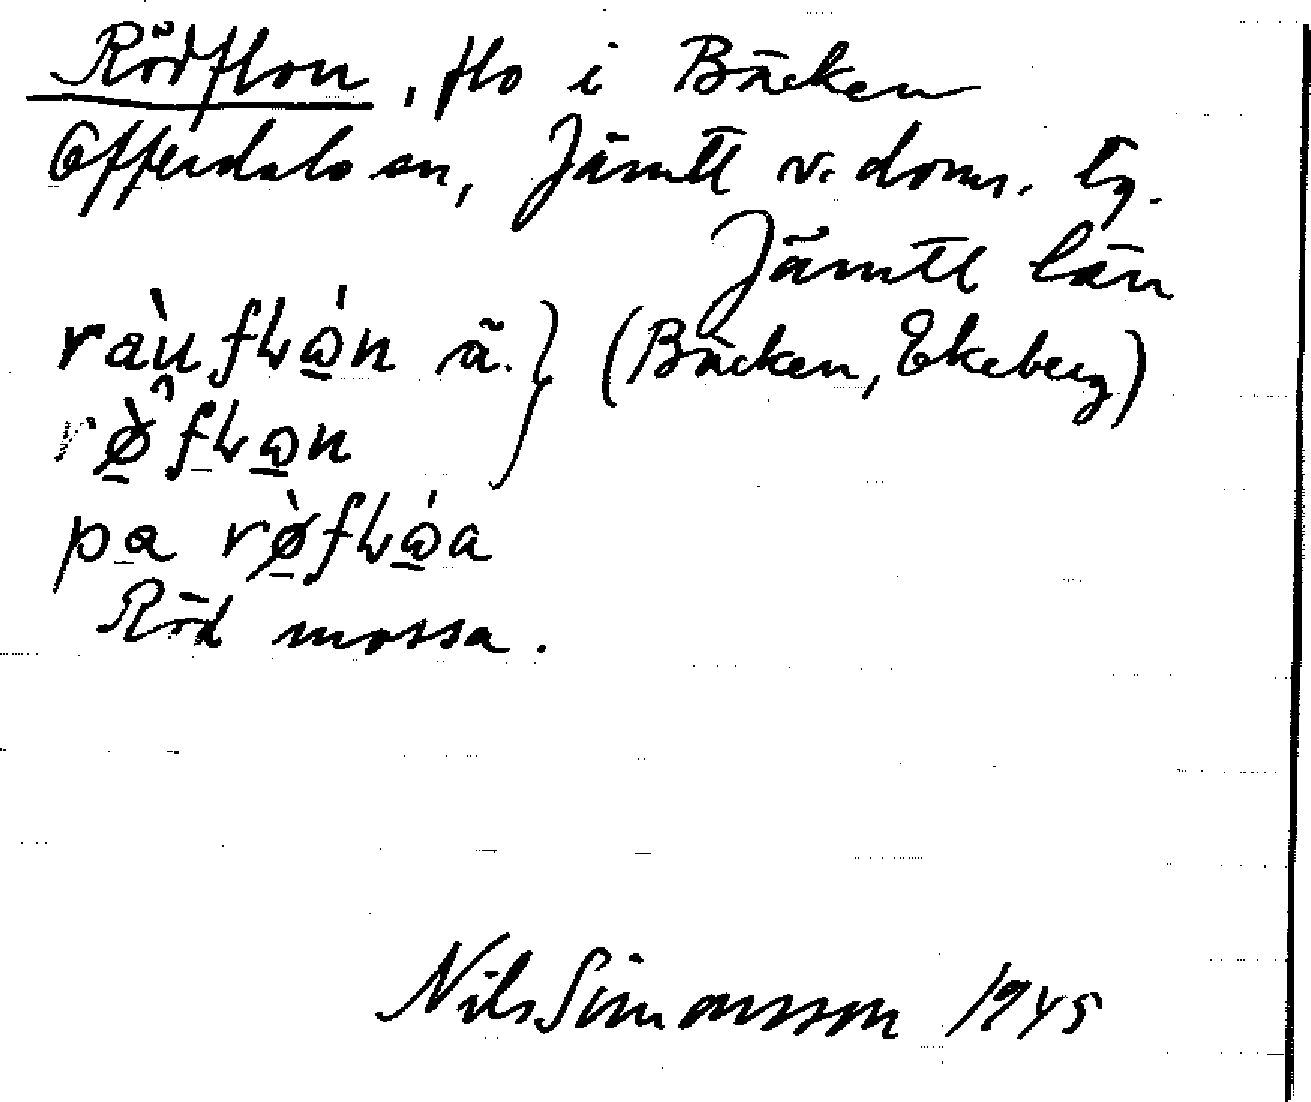 Rödflon, flo i Bäcken
Offerdals sn, Jämtl v. doms. tg.
Jämtl län
ràu̯fɬώ̲n ä. } (Bäcken, Ekeberg)
rø̲̀fɬω̲n
pa rø̲̀fɬώ̲a
Röd mossa.
Nils Simonsson 1945